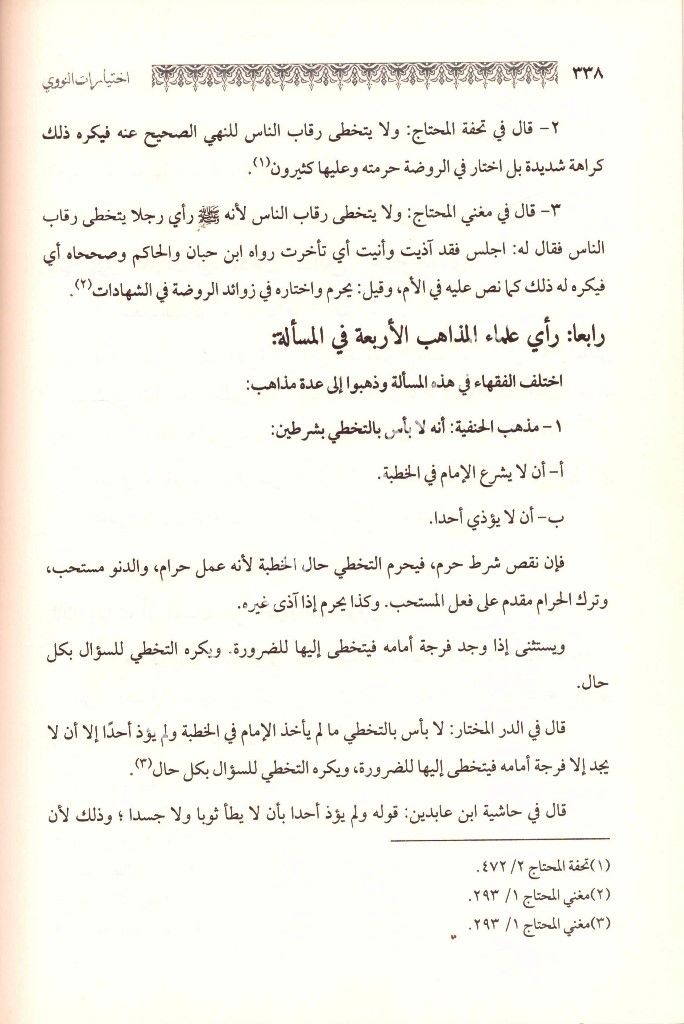 ٣٣٨ اختيارات النووي
٢- قال في تحفة المحتاج: ولا يتخطى رقاب الناس للنهي الصحيح عنه فيكره ذلك
كراهة شديدة بل اختار في الروضة حرمته وعليها كثيرون(١).
٣- قال في مغني المحتاج: ولا يتخطى رقاب الناس لأنه ﷺ رأي رجلا يتخطى رقاب
الناس فقال له: اجلس فقد آذيت وأنيت أي تأخرت رواه ابن حبان والحاكم وصححاه أي
فيكره له ذلك كما نص عليه في الأم، وقيل: يحرم واختاره في زوائد الروضة في الشهادات(٢).
رابعا: رأي علماء المذاهب الأربعة في المسألة:
اختلف الفقهاء في هذه المسألة وذهبوا إلى عدة مذاهب:
١- مذهب الحنفية: أنه لا بأس بالتخطي بشرطين:
أ- أن لا يشرع الإمام في الخطبة.
ب- أن لا يؤذي أحدا.
فإن نقص شرط حرم، فيحرم التخطي حال الخطبة لأنه عمل حرام، والدنو مستحب،
وترك الحرام مقدم على فعل المستحب. وكذا يحرم إذا آذى غيره.
ويستثنى إذا وجد فرجة أمامه فيتخطى إليها للضرورة. ويكره التخطي للسؤال بكل
حال.
قال في الدر المختار: لا بأس بالتخطي ما لم يأخذ الإمام في الخطبة ولم يؤذ أحدًا إلا أن لا
يجد إلا فرجة أمامه فيتخطى إليها للضرورة، ويكره التخطي للسؤال بكل حال(٣).
قال في حاشية ابن عابدين: قوله ولم يؤذ أحدا بأن لا يطأ ثوبا ولا جسدا ؛ وذلك لأن
(١)تحفة المحتاج ٢/ ٤٧٢.
(٢)مغني المحتاج ١/ ٢٩٣.
(٣)مغني المحتاج ١/ ٢٩٣.